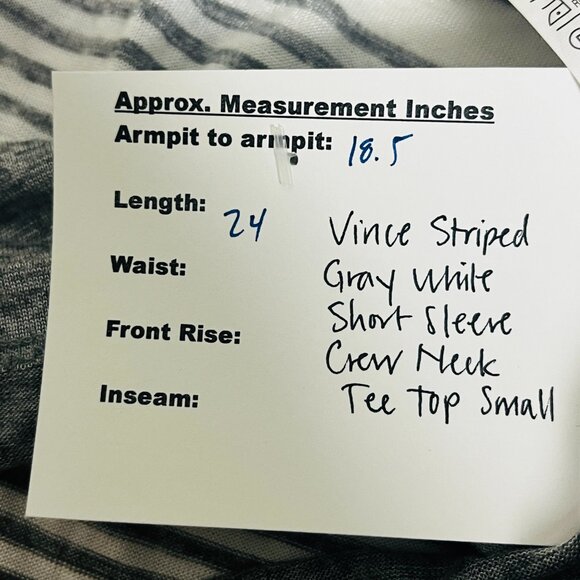 Approx. Measurement Inches
Armpit to armpit: 18.5
Length: 24
Waist:
Front Rise:
Inseam:
Vince Striped
Gray White
Short Sleeve
Crew Neck
Tee Top Small